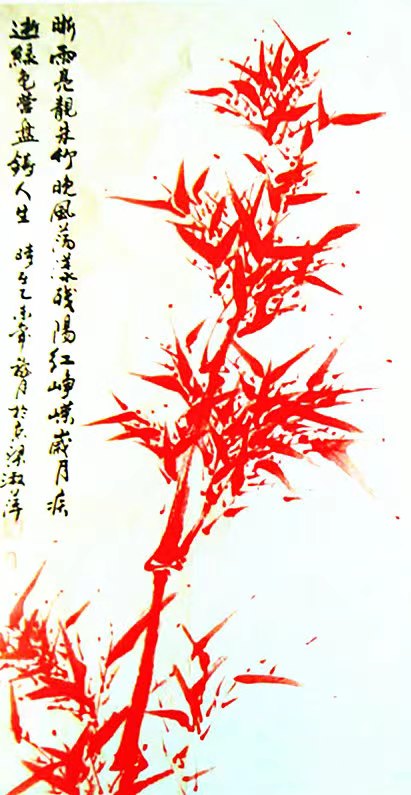 晰雨亮靓朱竹晚風荡漾残陽红峥嵘歲月疾
逝綠色营盘铸人生 時在乙未年月於京梁淑萍